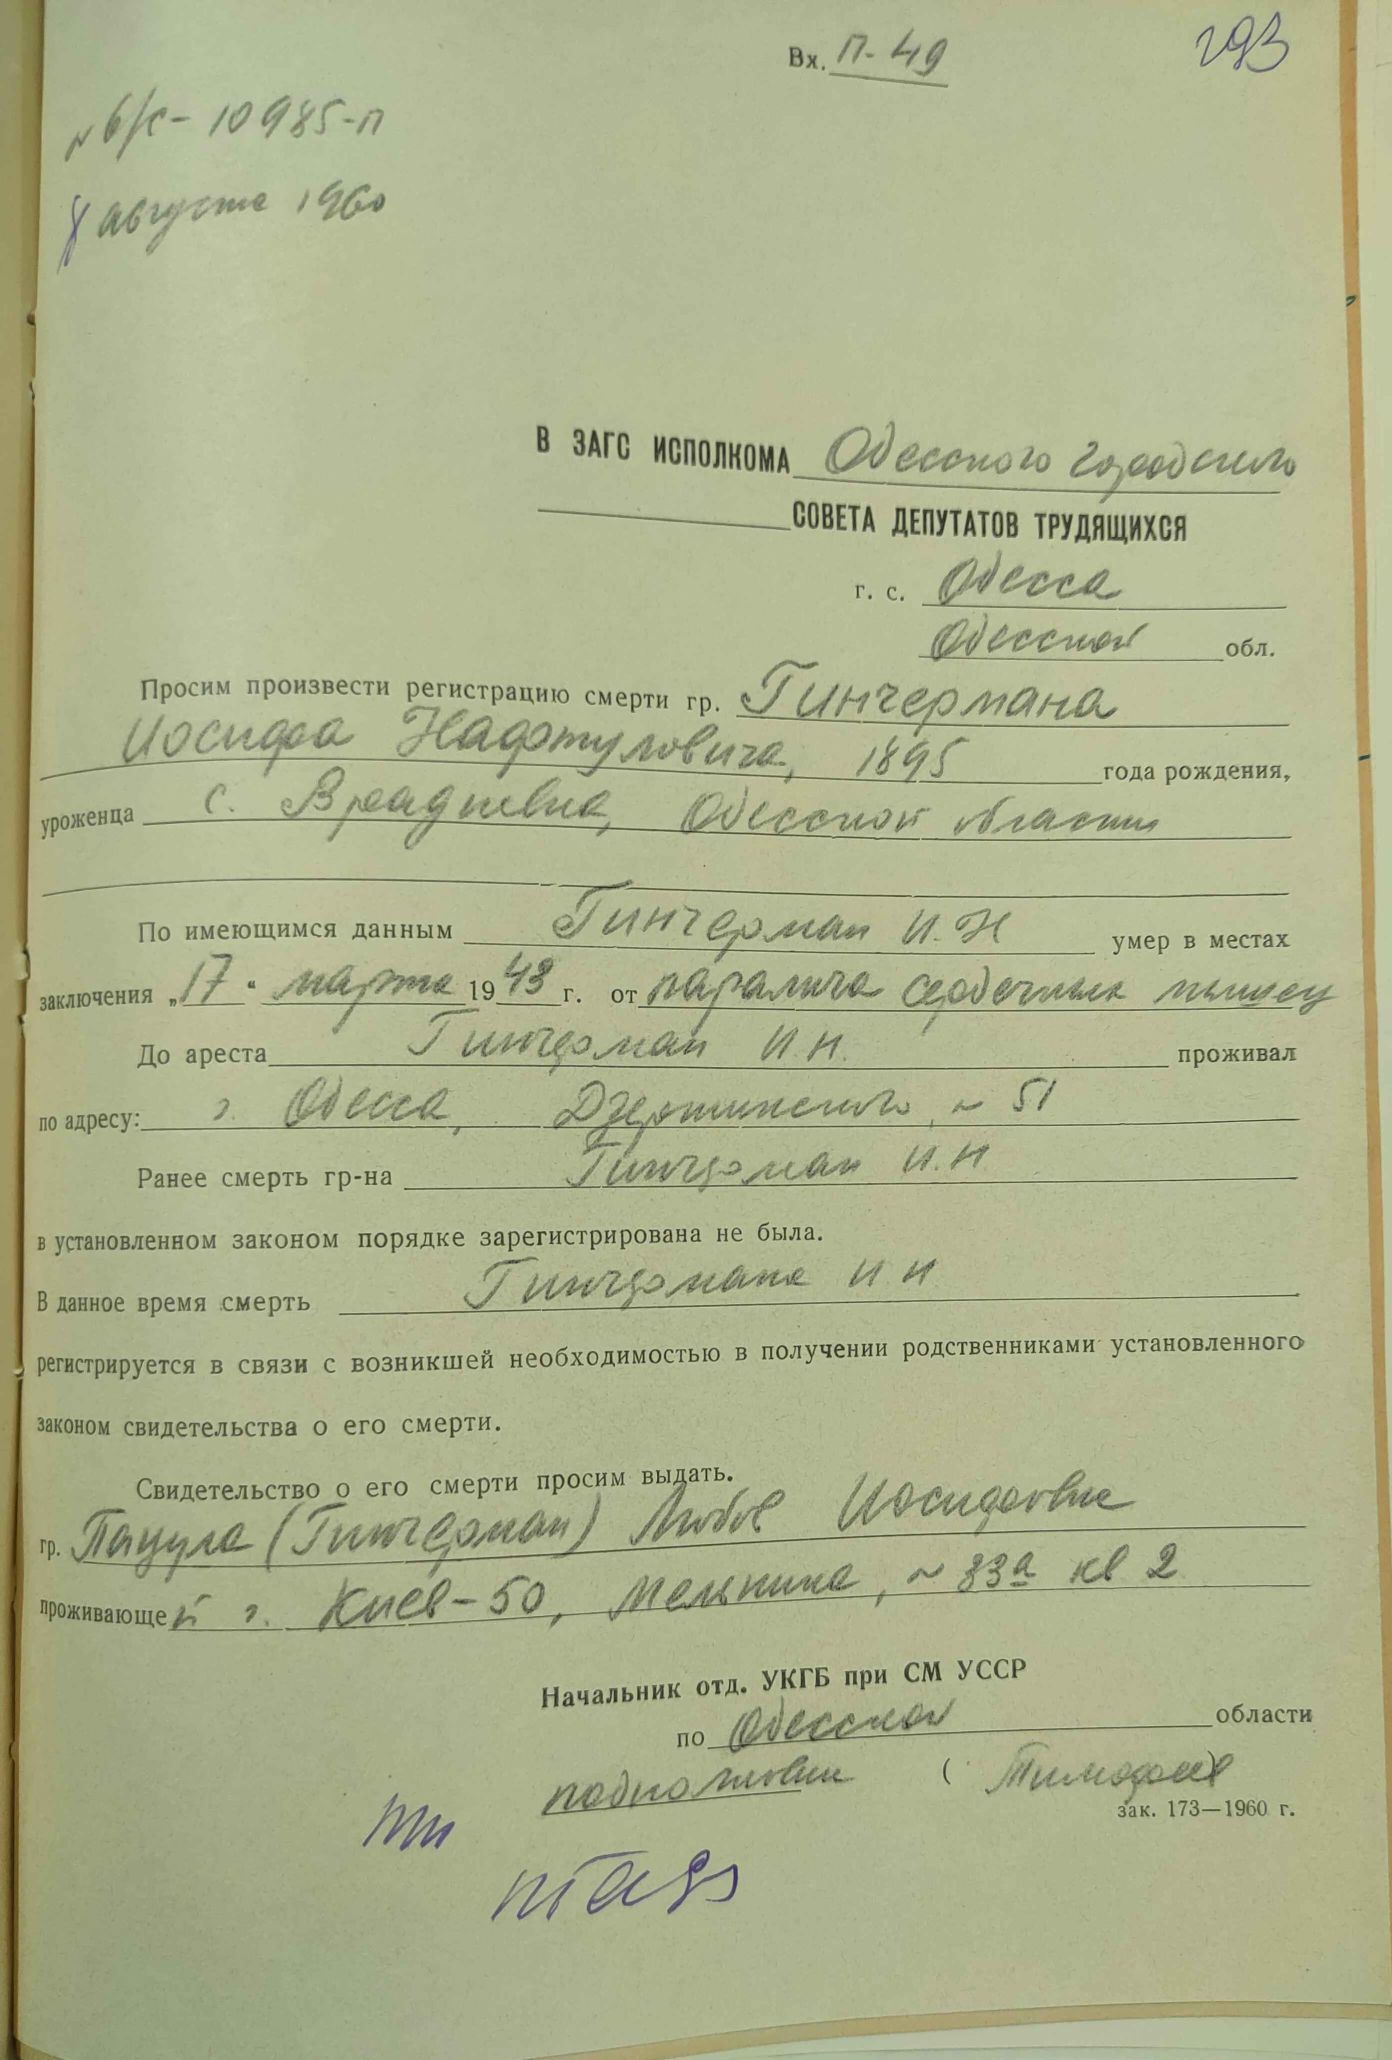 Вх. П-49
293
№ 6/с-10985-п
8 августа 1960
В ЗАГС ИСПОЛКОМА Одесского городского
СОВЕТА ДЕПУТАТОВ ТРУДЯЩИХСЯ
г. с. Одесса
Одесской обл.
Просим произвести регистрацию смерти гр. Гинчермана
Иосифа Нафтуловича, 1895 года рождения,
уроженца с. Врадиевка, Одесской области
По имеющимся данным Гинчерман И.Н умер в местах
заключения „17" марта 1943 г. от паралича сердечных мышц
До ареста Гинчерман И Н. проживал
по адресу: г. Одесса, Дзержинского, № 51
Ранее смерть гр-на Гинчерман И.Н
в установленном законом порядке зарегистрирована не была.
В данное время смерть Гинчермана И Н
регистрируется в связи с возникшей необходимостью в получении родственниками установленного
законом свидетельства о его смерти.
Свидетельство о его смерти просим выдать.
гр. Пацула (Гинчерман) Любовь Иосифовне
проживающей г. Киев-50, Мельника, № 83а кв 2
Начальник отд. УКГБ при СМ УССР
по Одесской области
подполковник ( Тимофеев
зак. 173—1960 г.